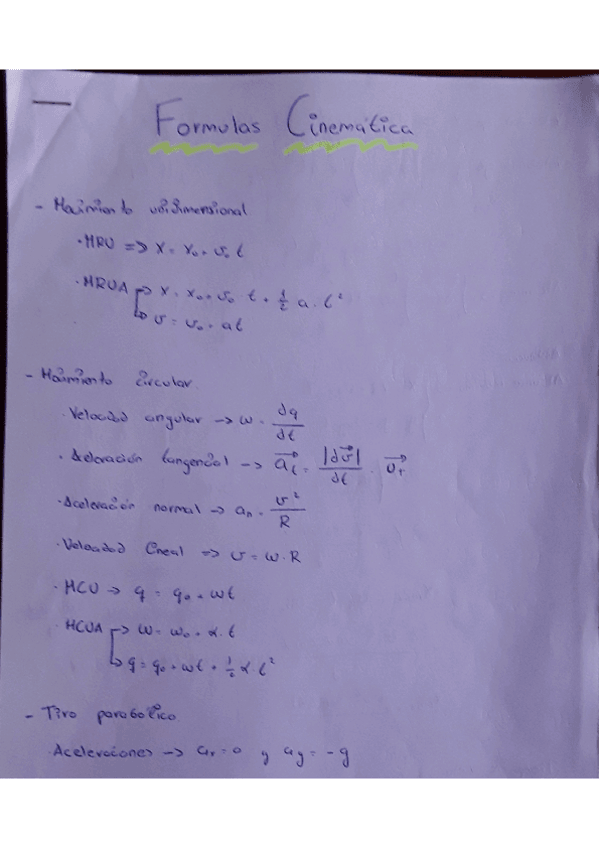 Formulas Cinemática
- Movimiento unidimensional
· MRU => x = x₀ + v₀ t
· MRUA -> x = x₀ + v₀ t + 1/2 a · t²
-> v = v₀ + at
- Movimiento circular.
· Velocidad angular -> ω = dq/dt
· Aceleración tangencial -> a⃗t = |dv⃗|/dt · u⃗т
· Aceleración normal -> an = v²/R
· Velocidad lineal => v = ω · R
· MCU -> q = q₀ + ωt
· MCUA -> ω = ω₀ + α · t
-> q = q₀ + ωt + 1/2 α t²
- Tiro parabólico
· Aceleraciones -> ax = 0 y ay = -g